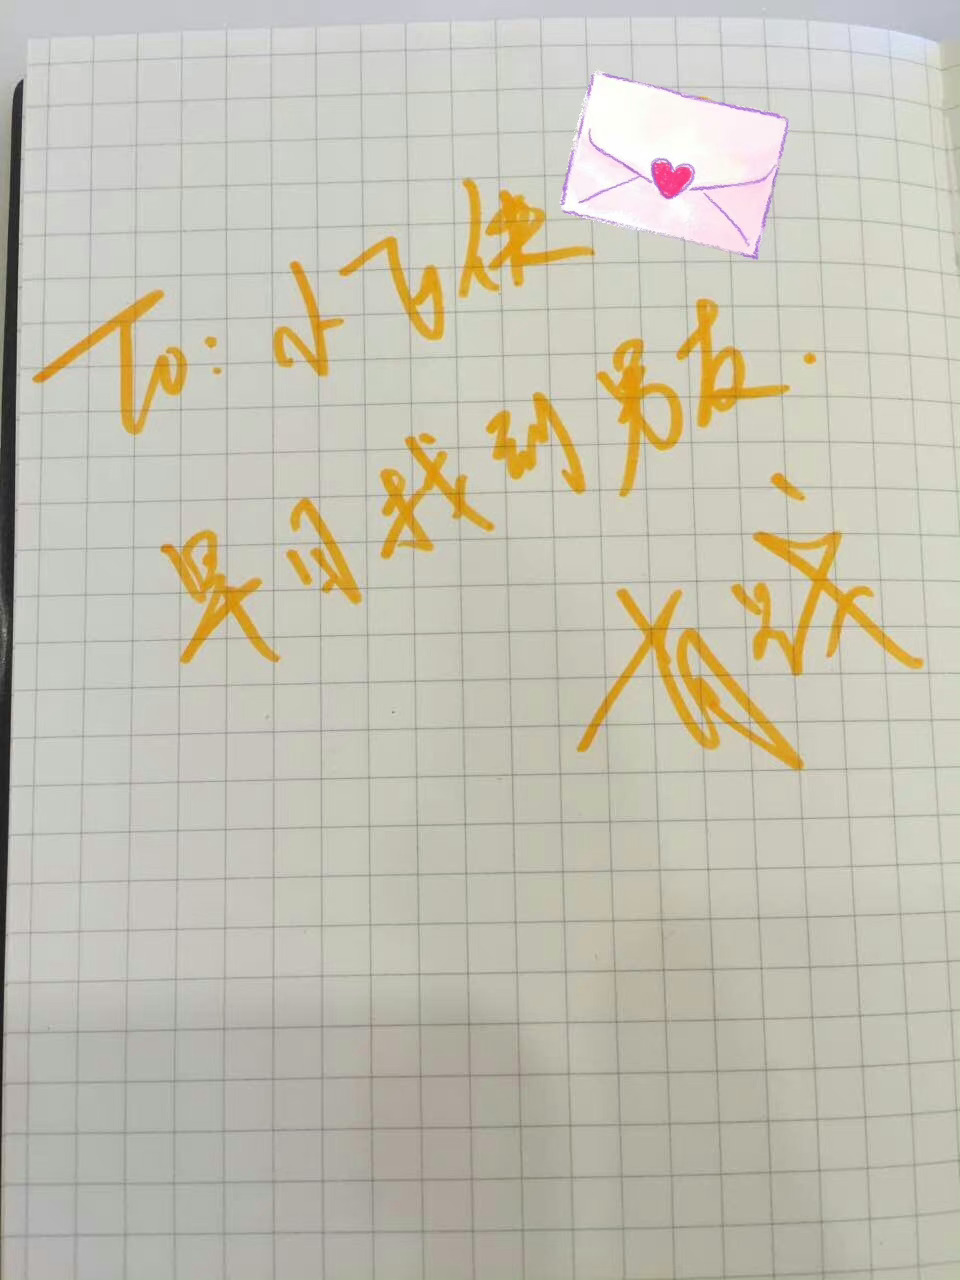 To: 小飞侠
早日找到男友.